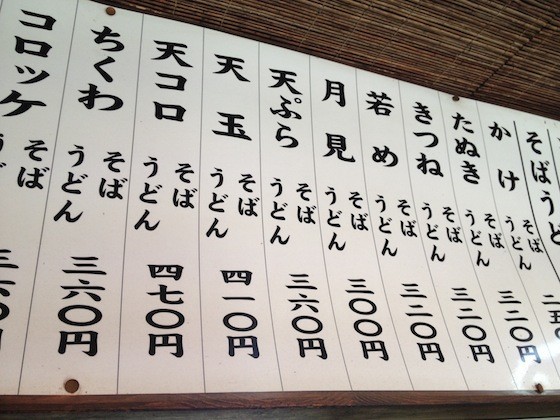 そばうどん 二五〇
かけ そば うどん 三二〇円
たぬき そば うどん 三二〇円
きつね そば うどん 三二〇円
若め そば うどん 三〇〇円
月見 そば うどん 三〇〇円
天ぷら そば うどん 三六〇円
天玉 そば うどん 四一〇円
天コロ そば うどん 四七〇円
ちくわ そば うどん 三六〇円
コロッケ そば うどん 三六〇円